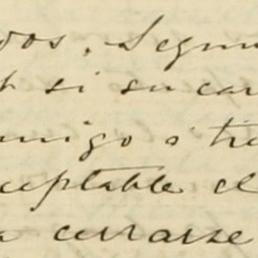 dos. Segun
si su car
amigo o tie
ceptable el
a cerrarse